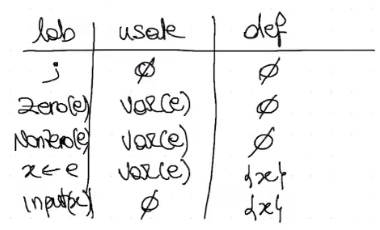 lab | usate | def
; | ∅ | ∅
Zero(e) | var(e) | ∅
NonZero(e) | var(e) | ∅
x ← e | var(e) | {x}
input(x) | ∅ | {x}